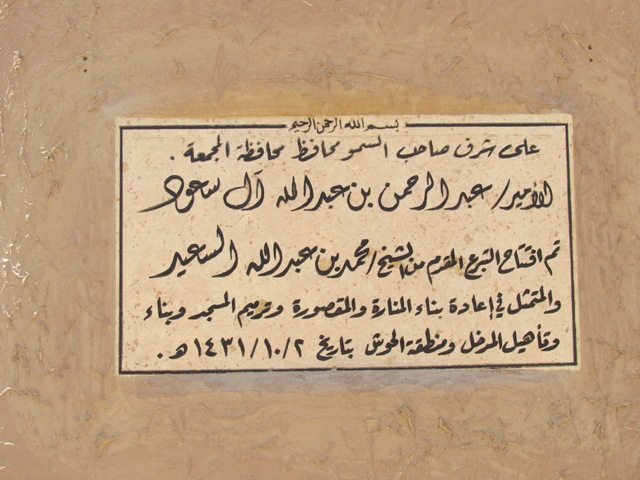 بسم الله الرحمن الرحيم
على شرف صاحب السمو محافظ محافظة المجمعة .
الأمير/ عبد الرحمن بن عبد الله آل سعود
تم افتتاح التبرع المقدم من الشيخ/ محمد بن عبد الله السعيد
والمتمثل في إعادة بناء المنارة والمقصورة وترميم المسجد وبناء
وتأهيل المدخل ومنطقة الحوش بتاريخ ١٤٣١/١٠/٢ هـ .